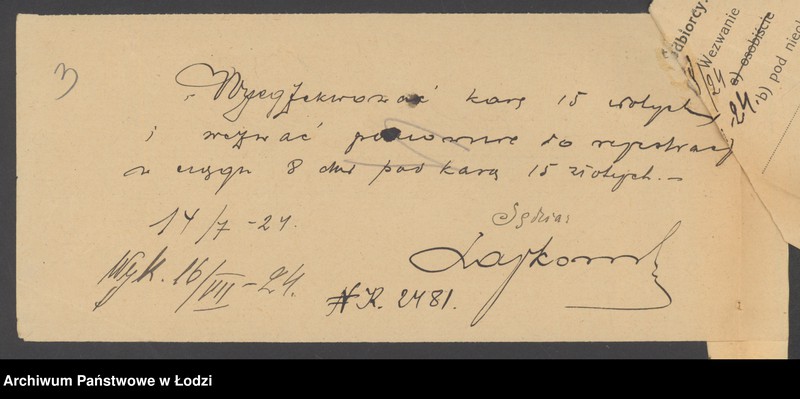 3
Wyegzekwować karę 15 złotych
i wezwać ponownie do rejestracji
w ciągu 8 dni pod karą 15 złotych. —
14/7 - 24.
Sędzia:
Wyk. 16/VIII - 24.
K. 2481.
Odbiorcy.
Wezwanie
a) osobiście
b) pod nieob
24.
Archiwum Państwowe w Łodzi